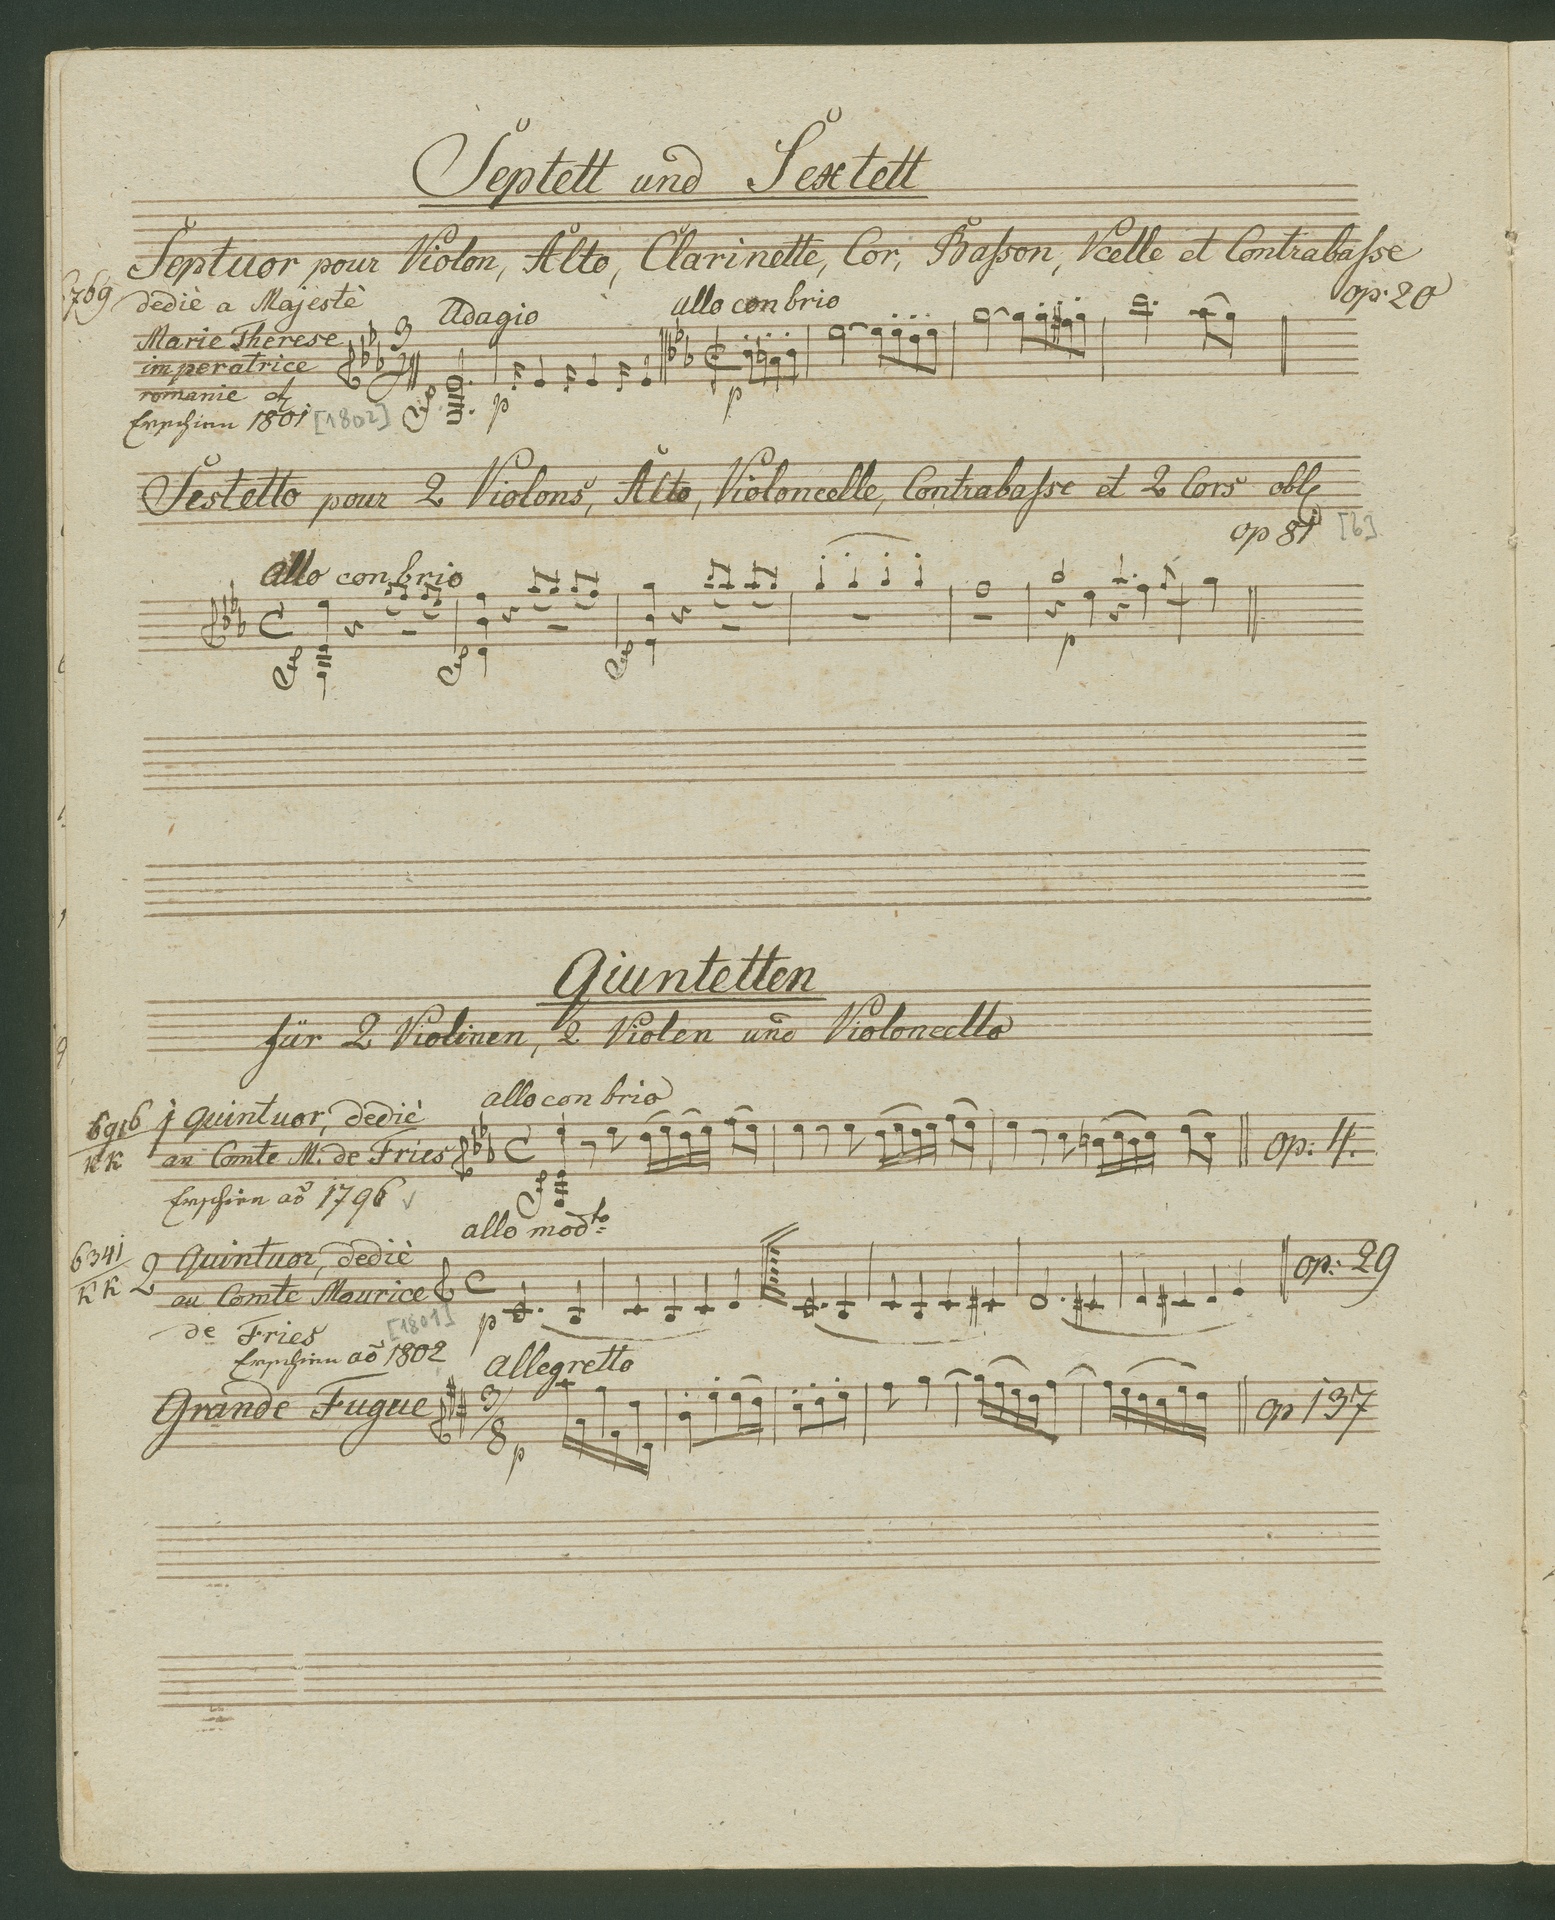 Septett und Sextett
Septuor pour Violon, Alto, Clarinette, Cor, Baſson, Vcelle et Contrabaſse
op: 20
dediè a Majestè
Marie Therese
imperatrice
romanie
Erschien 1801 [1802]
Adagio
allo con brio
p
p
Sestetto pour 2 Violons, Alto, Violoncelle, Contrabaſse et 2 Cors obl
op 81 [b]
allo con brio
p
Qiuntetten
für 2 Violinen, 2 Violen und Violoncello
allo con brio
6916
KK
1 Quintuor, dediè
au Comte M. de Fries
Erschien aõ 1796
op: 4.
allo modto
6341
KK
2 Quintuor, dediè
au Comte Maurice
de Fries
[1801]
Erschien aõ 1802
p
op: 29
allegretto
Grande Fugue
3/8
p
op 137